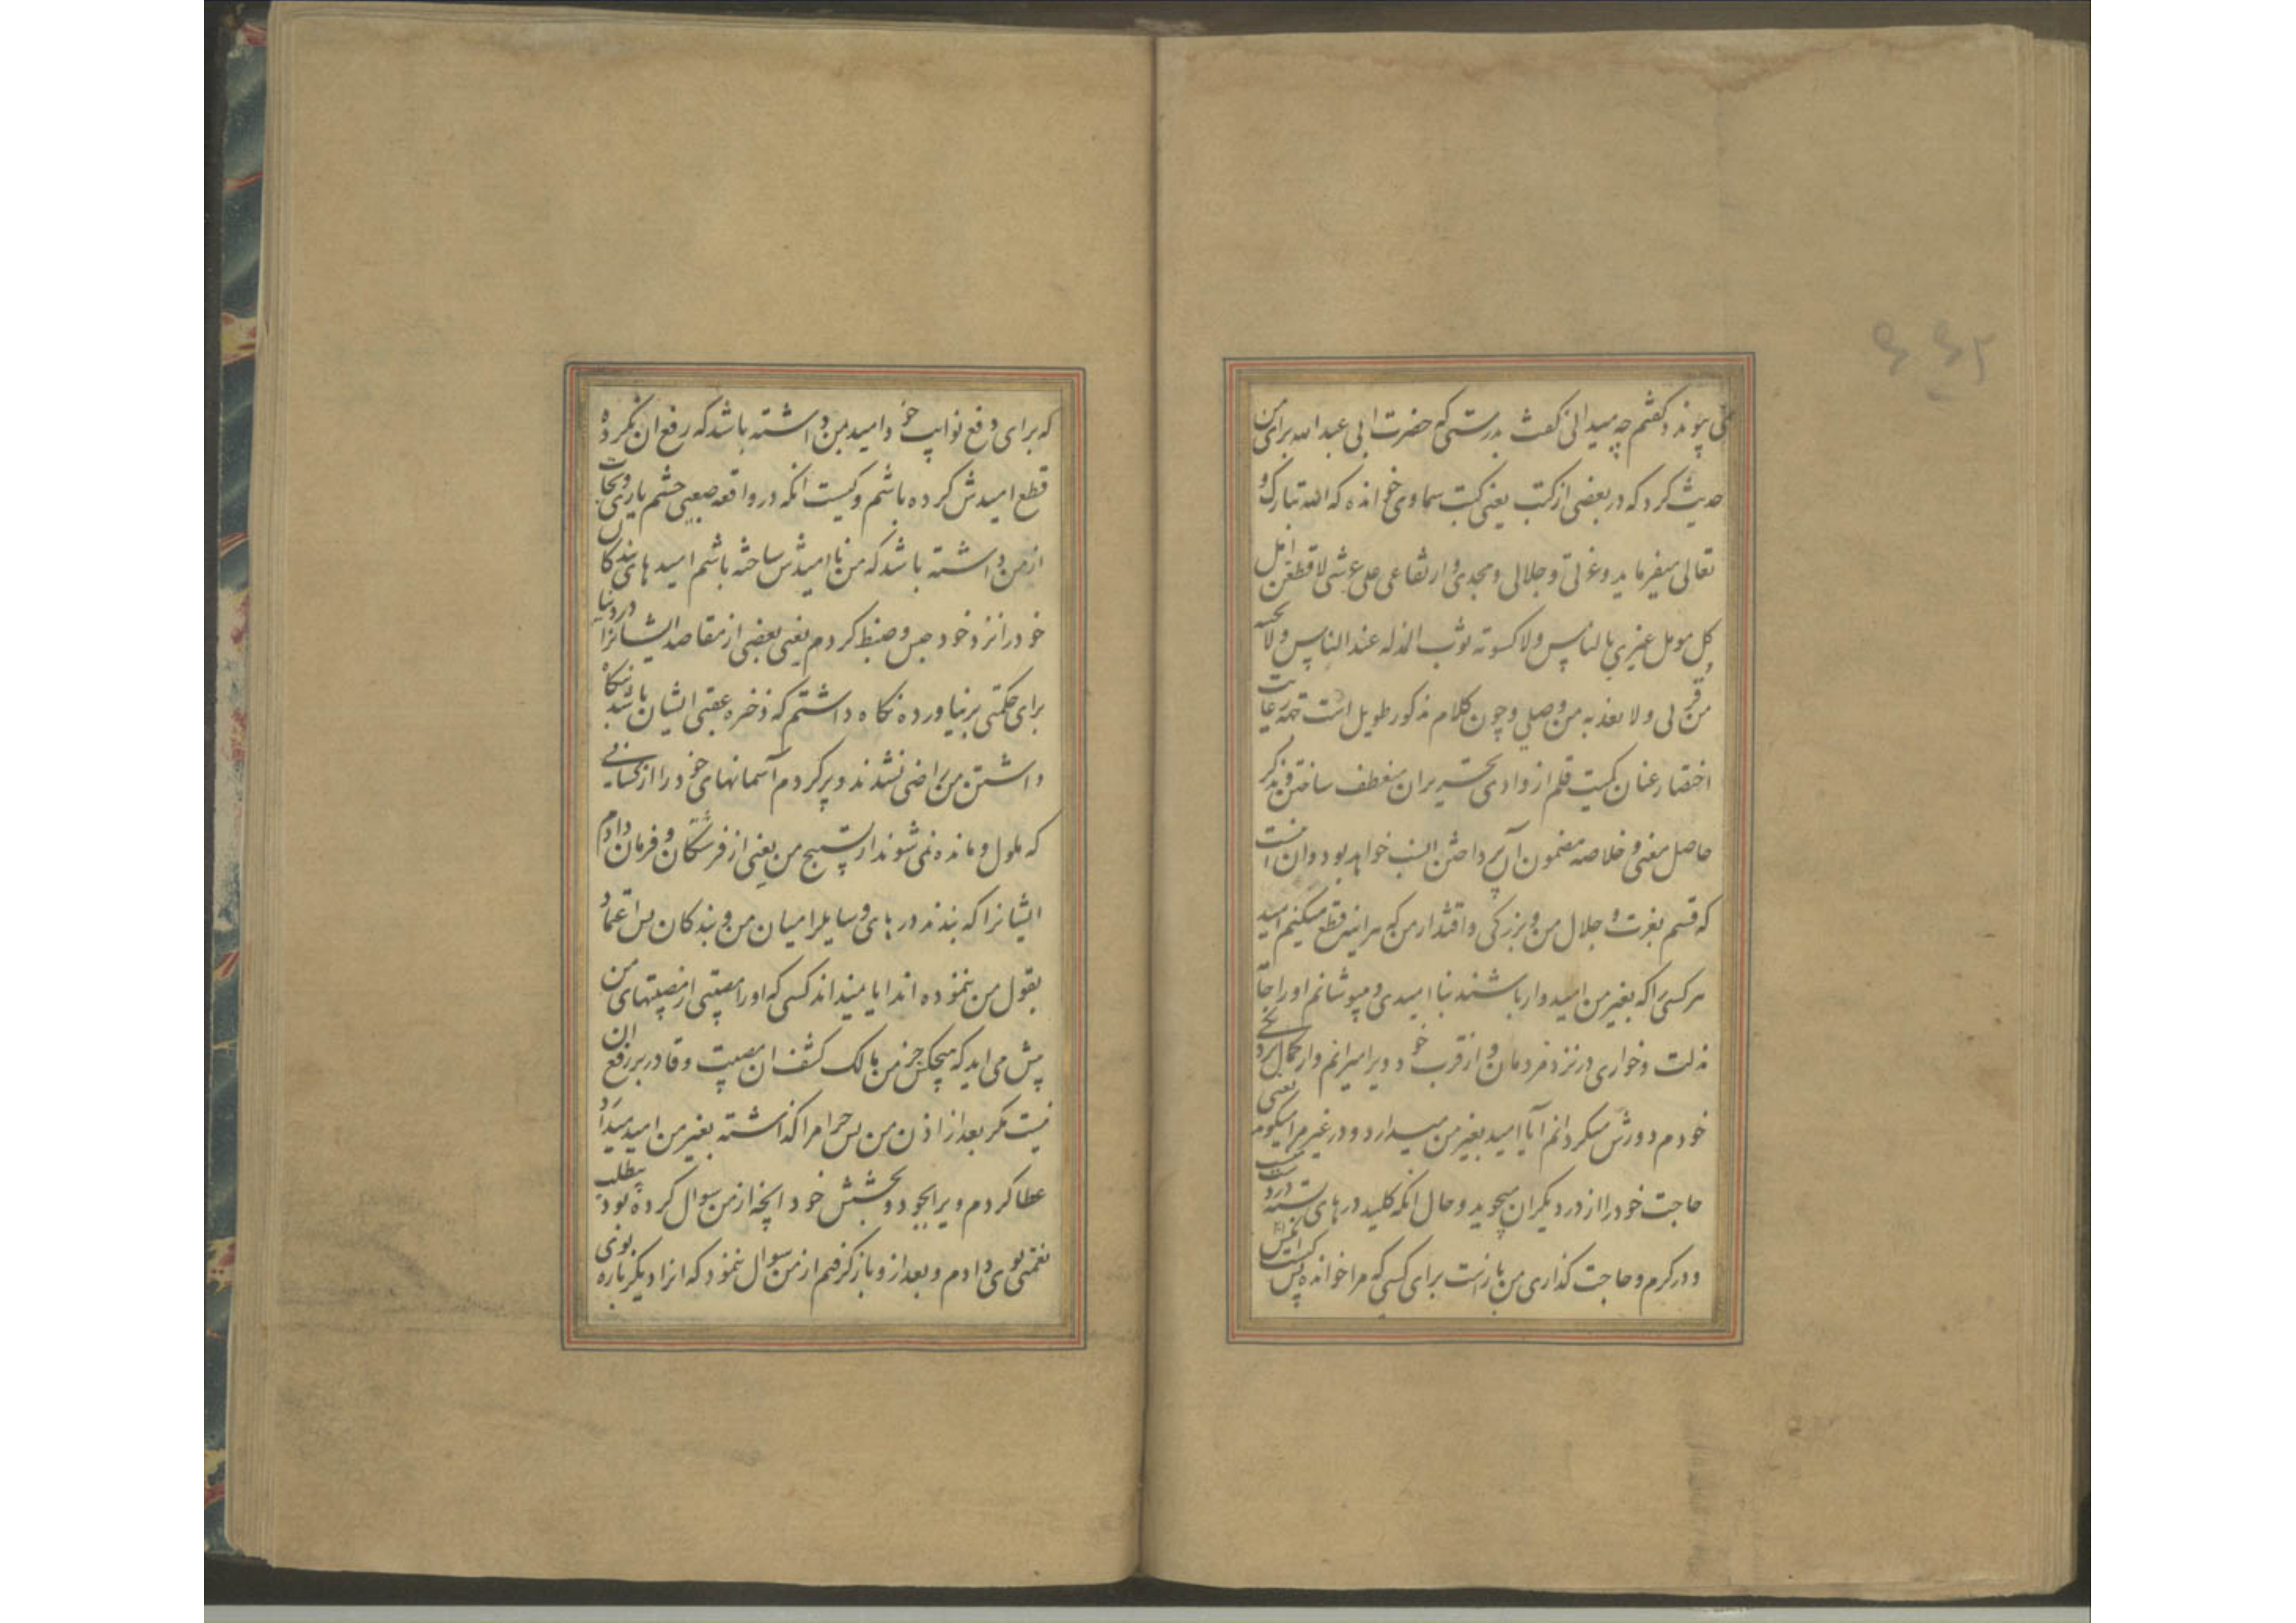 نمی پیوندد گفتم چه میدانی گفت بدرستی که حضرت ابی عبد الله برای من
حدیث کرد که در بعضی از کتب یعنی کتب سماوی خوانده که الله تبارک و
تعالی میفرماید و عزتی و جلالی و مجدی و ارتفاعی علی عرشی لاقطعن امل
کل مومل غیری بالیاس ولاکسونه ثوب المذله عند الناس ولا نحینه
من قربی ولا بعدنه من وصلی و چون کلام مذکور طویل است جهت رعایت
اختصار عنان کمیت قلم از وادی تحریر ان منعطف ساختن و بذکر
حاصل معنی و خلاصه مضمون آن پرداختن انسب خواهد بود و ان اینست
که قسم بعزت و جلال من و بزرکی و اقتدار من که هراینه قطع میکنم امید
هر کسی را که بغیر من امیدوار باشند بنا امیدی و میپوشانم او را جامه
مذلت و خواری در نزد مردمان و از قرب خود ویرا میرانم و از
خودم دورش میکردانم آیا امید بغیر من میدارد و در غیر مرا میکوبد یعنی
حاجت خود را از در دیکران میجوید و حال انکه کلید درهای بسته در دست
و در کرم و حاجت کذاری من باز است برای کسی که مرا خوانده پس کیست
که برای دفع نوایب خود امید بمن داشته باشد که رفع ان نکرده
قطع امیدش کرده باشم و کیست انکه در واقعه صعبی چشم یاری و نجات
از من داشته باشد که من نا امیدش ساخته باشم امید های بندکان
خود را نزد خود حبس و ضبط کردم یعنی بعضی از مقاصد ایشانرا در دنیا
برای حکمتی برنیاورده نکاه داشتم که ذخره عقبی ایشان باشد بنکاه
داشتن من راضی نشدند و پر کردم آسمانهای خود را از کسانی
که ملول و مانده نمی شوند از تسبیح من یعنی از فرشتکان و فرمان دادم
ایشانرا که نبندند درهای وسایل را میان من و بندکان پس اعتماد
بقول من ننموده اند ایا میدانند کسی که او را مصیبتی از مصیبتهای من
پیش می اید که هیچکس جز من مالک کشف ان مصیبت و قادر بر رفع ان
نیست مکر بعد از اذن من پس چرا مرا کذاشته بغیر من امید میدارد
عطا کردم ویرا بجود و بخشش خود انچه از من سوال کرده بود بیطلب
نعمتی بوی دادم و بعد از و باز کرفتم از من سوال ننمود که انرا دیکر باره بوی